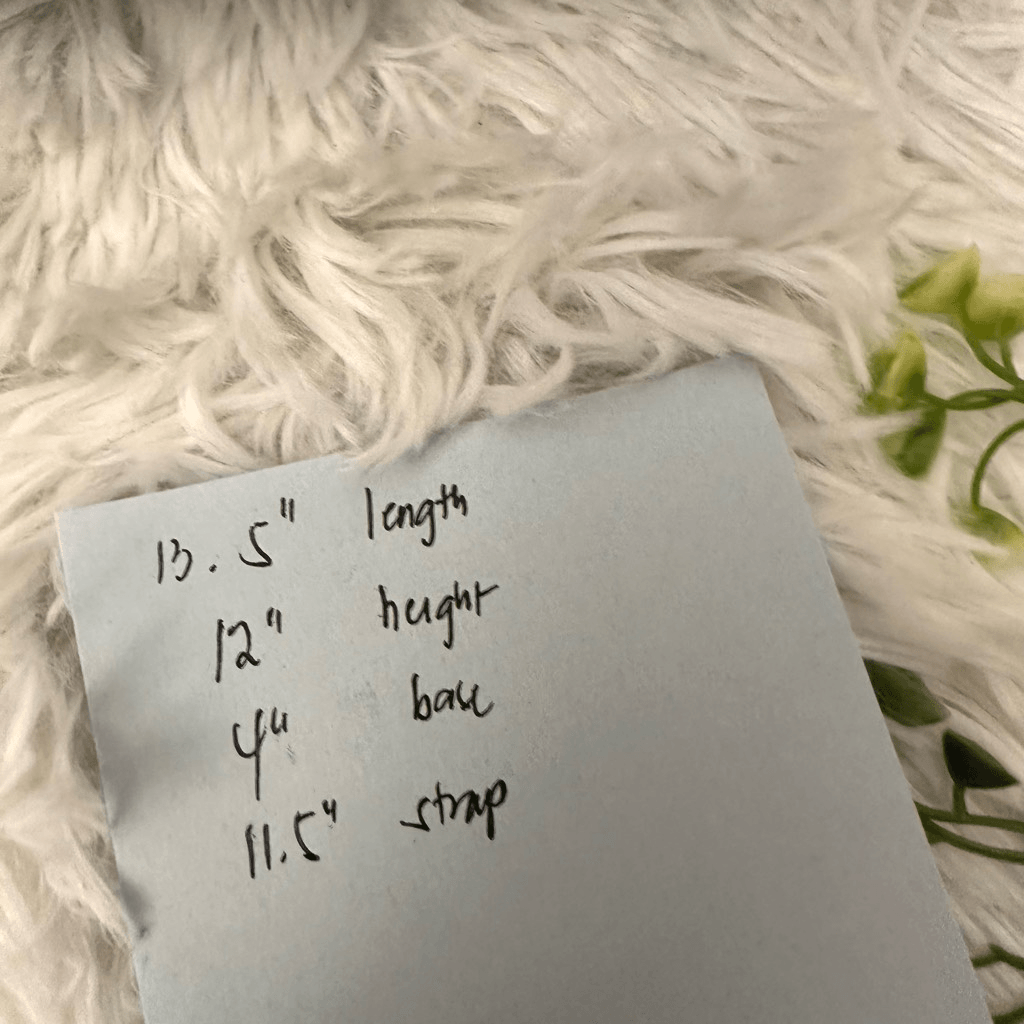 13.5" length
12" height
4" base
11.5" strap